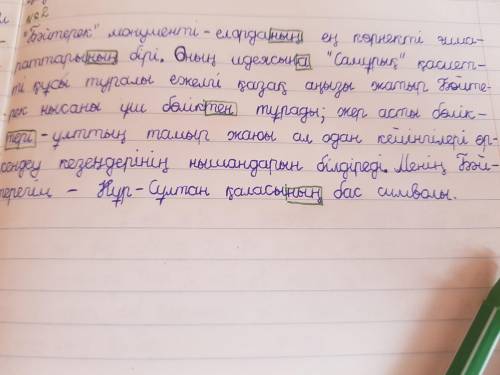 №2
"Бәйтерек" монументі - елорданың ең көрнекті ғима-
раттарының бірі. Оның идеясына "Самұрық" қасиет-
ті құсы туралы ежелгі қазақ аңызы жатыр Бәйте-
рек нысаны үш бөліктен тұрады; жер асты бөлік-
тері - ұлттың тамыр жаюы ал одан кейінгілері өр-
кендеу кезеңдерінің нышандарын білдіреді. Менің Бәй-
терегім - Нұр-Сұлтан қаласының бас символы.